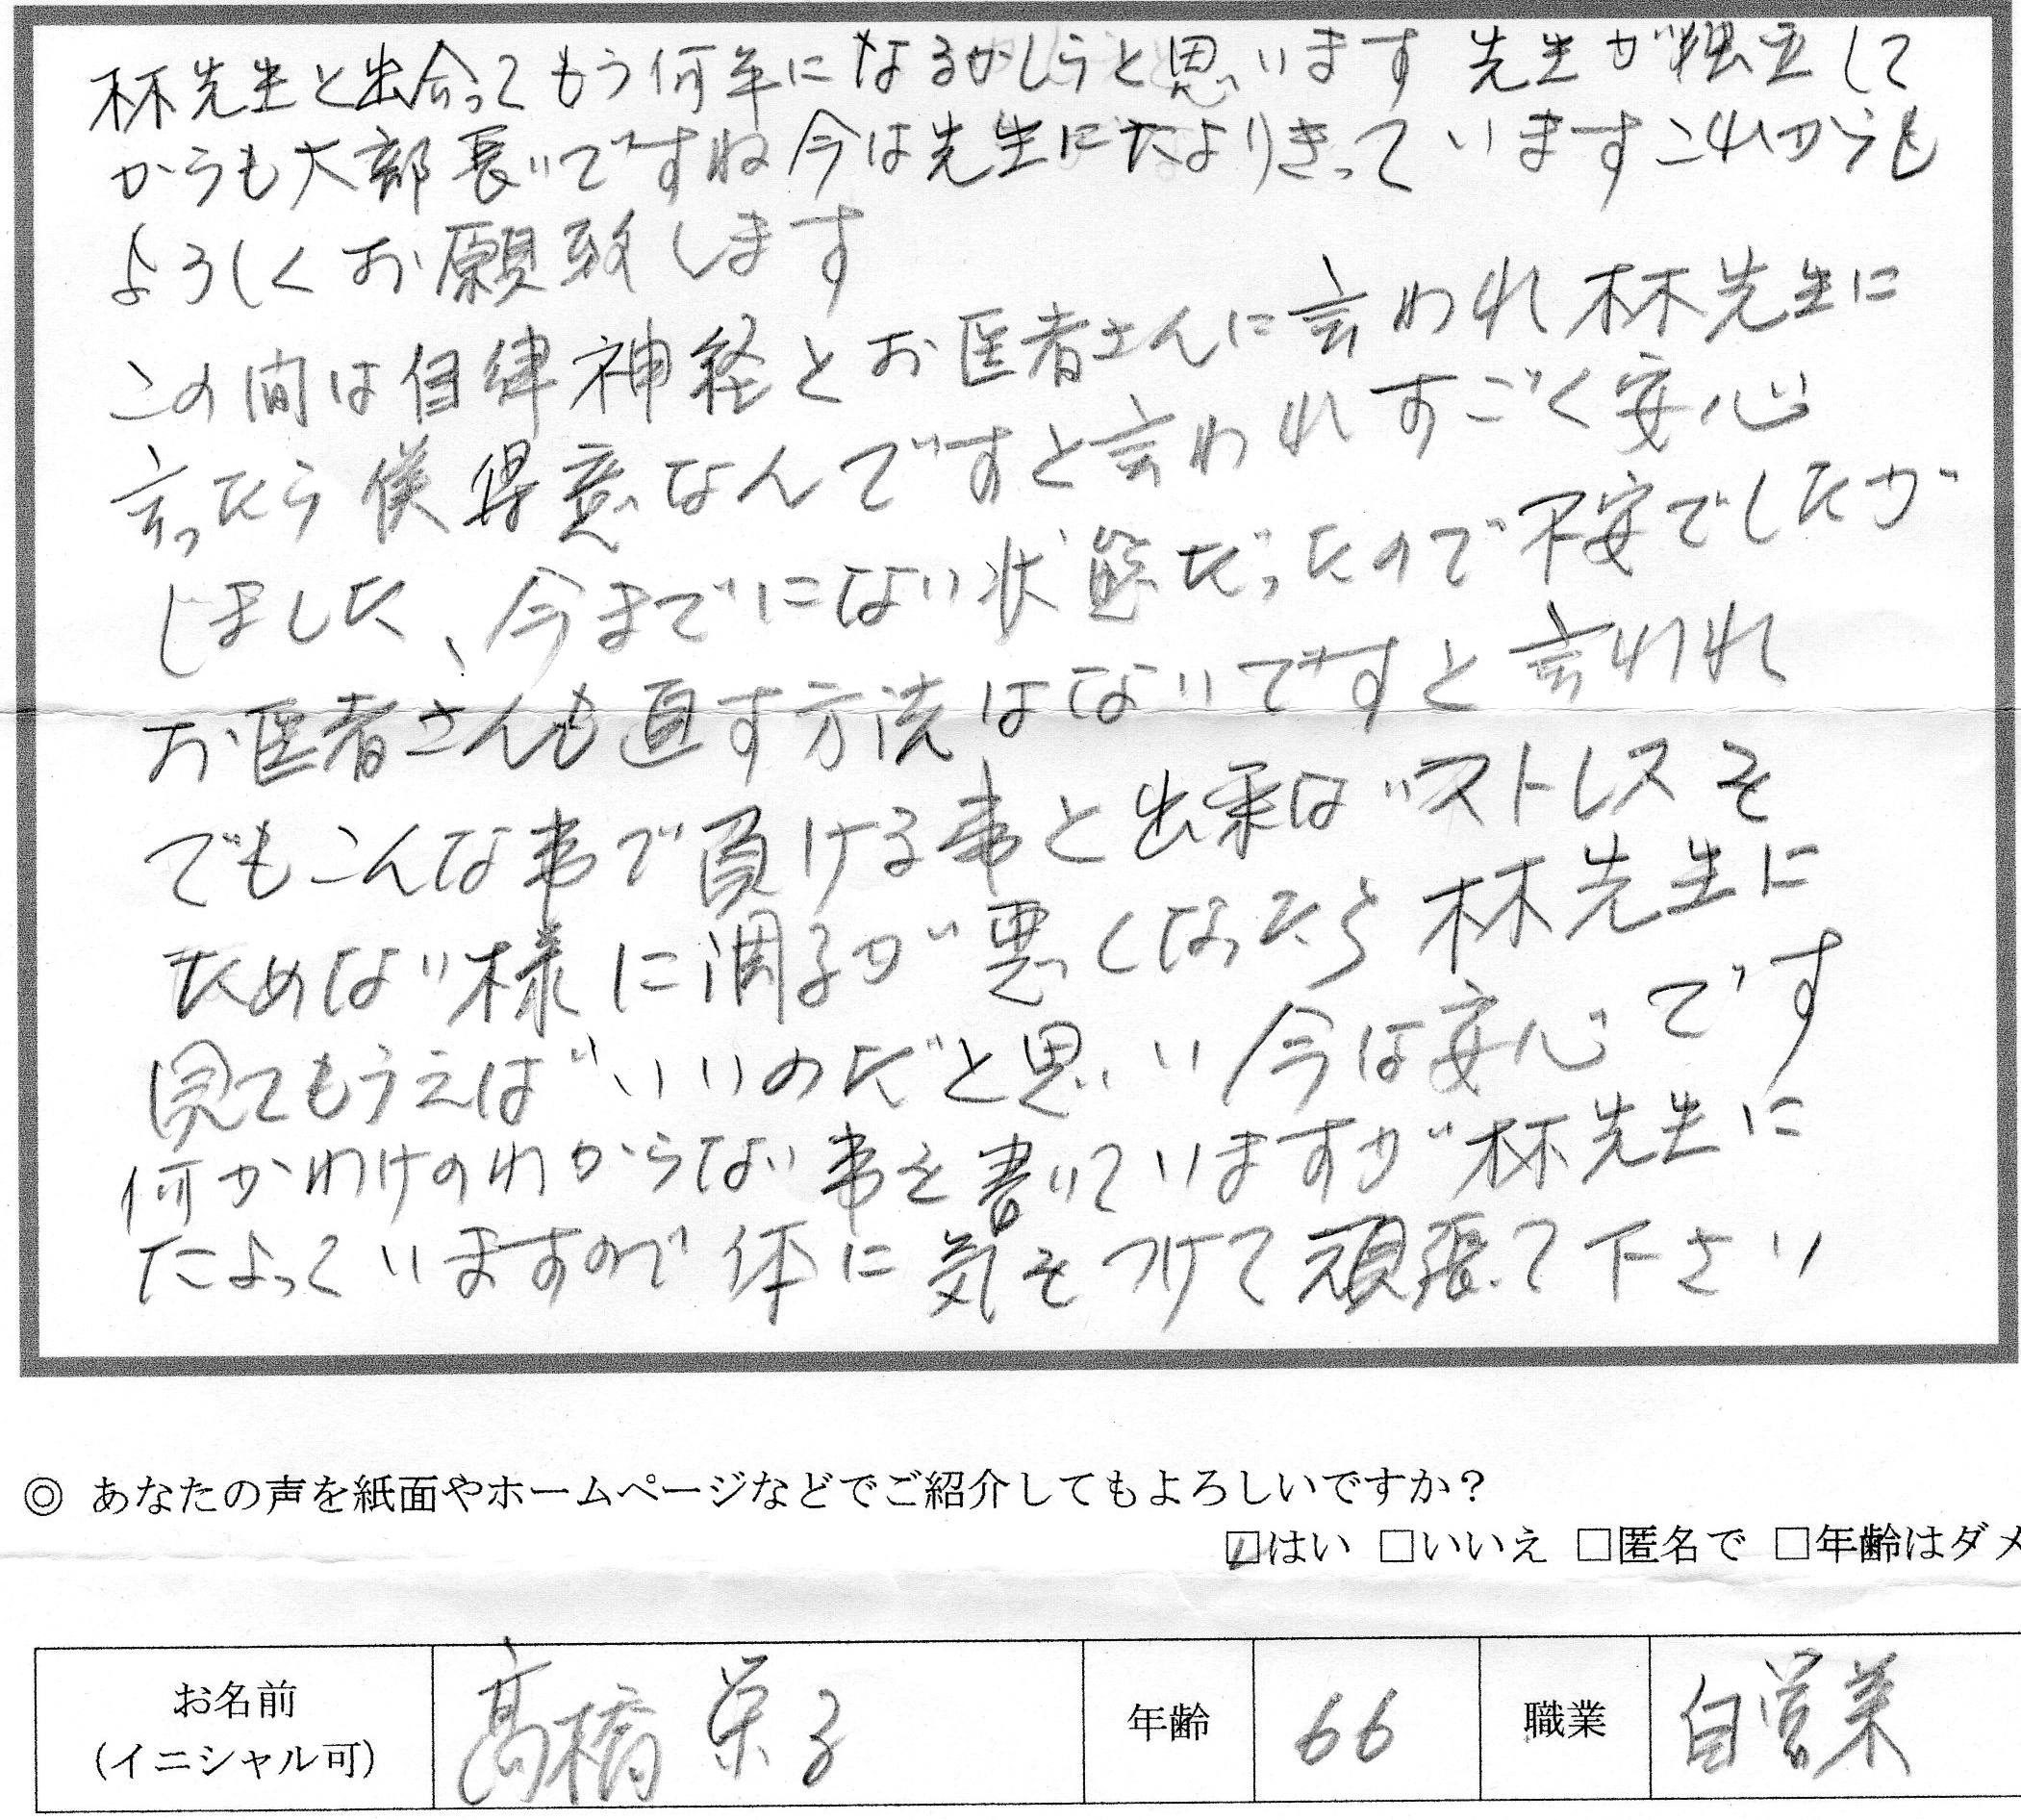 林先生と出会ってもう何年になるかしらと思います 先生が独立して
からも大部長いですね 今は先生にたよりきっています これからも
よろしくお願致します
この間は自律神経とお医者さんに言われ林先生に
言ったら僕得意なんですと言われすごく安心
しました、今までにない状態だったので不安でしたが
お医者さんも直す方法はないですと言われ
でもこんな事で負ける事と出来ばストレスを
ためない様に調子が悪くなったら林先生に
見てもらえばいいのだと思い今は安心です
何かわけのわからない事を書いていますが林先生に
たよっていますので体に気をつけて頑張て下さい
◎ あなたの声を紙面やホームページなどでご紹介してもよろしいですか?
☑はい □いいえ □匿名で □年齢はダメ
お名前
(イニシャル可)
高橋 栄子
年齢
66
職業
自営業